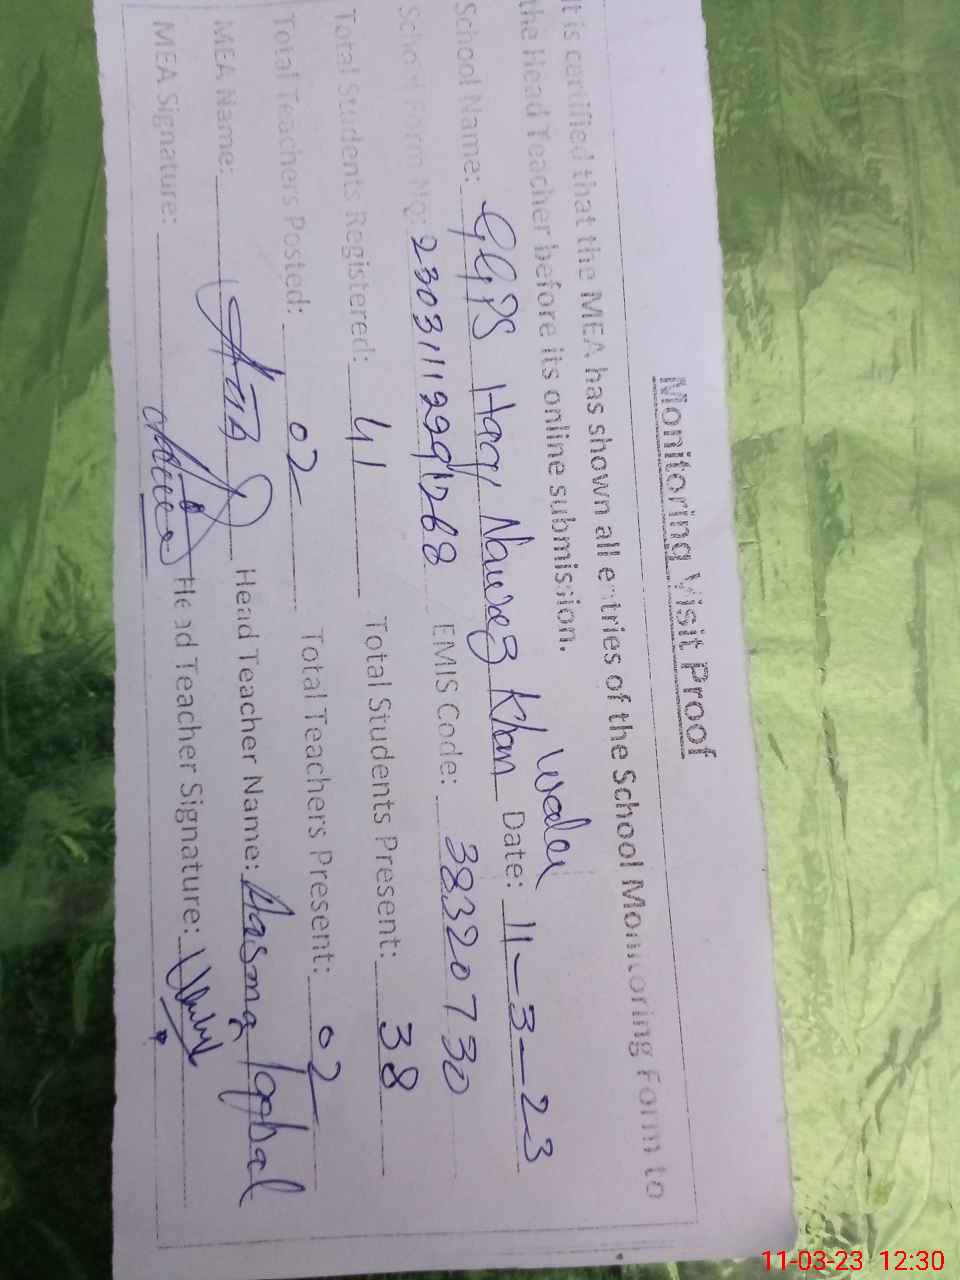 Monitoring Visit Proof
It is certified that the MEA has shown all entries of the School Monitoring Form to
the Head Teacher before its online submission.
School Name: GGPS Haq Nawaz Khan Wala Date: 11-3-23
School Form No: 23031112991268 EMIS Code: 38320730
Total Students Registered: 41 Total Students Present: 38
Total Teachers Posted: 02 Total Teachers Present: 02
MEA Name: Head Teacher Name: Aasma Iqbal
MEA Signature: Head Teacher Signature:
11-03-23 12:30